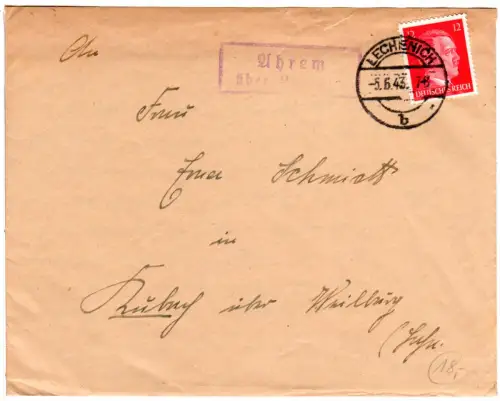 An
Ahrem
über
LECHENICH
-5.6.43.
b
12 12
DEUTSCHES REICH
Frau
Erna Schmidt
in
Kubach über Weilburg
(Lahn.
(18,-